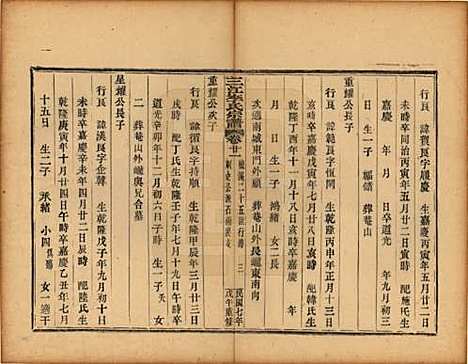 重耀公長子
行良 諱賀良字履慶 生嘉慶丙寅年五月廿二日
巳時卒同治丙寅年五月廿八日亥時 配施氏生
嘉慶 年 月 日卒道光 年 九月初三
日 生一子 繼緒 葬菴山
行良 諱範良字恆開 生乾隆丙申年正月十三日
亥時卒嘉慶戊寅年七月廿一日亥時 配韓氏生
乾隆丁酉年十一月十八日亥時卒嘉慶 年
月 日 生一子 鴻緒 女二長
次適南城東門外顧 葬菴山外嶴東南向
三江 氏宗譜
卷十一
三
民國七年
戊午重修
重耀公次子
行良 諱 良字 生乾隆甲辰年三月廿三日
戌時 配丁氏生乾隆壬子年七月十九日戌時卒
道光辛卯年十月初六日子時 生一子
二 葬菴山外嶴與兄合墓
星耀公長子
行良 諱漢良字持順 生乾隆戊子年九月初十日
未時卒嘉慶辛未年四月廿二日辰時 配陸氏生
乾隆庚寅年十月廿四日午時卒嘉慶乙丑年七月
十五日 生二子 承緒 小四俱殤 女一適干